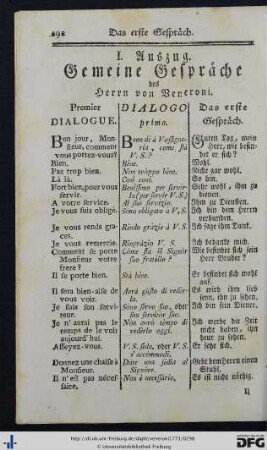 898 Das erste Gespräch.
I. Auszug.
Gemeine Gespräche
des
Herrn von Veneroni.
Premier
DIALOGUE.
Bon jour, Mon-
sieur, comment
vous portez-vous?
Bien.
Pas trop bien.
Là là.
Fort bien, pour vous
servir.
A votre service.
Je vous suis obligé.
Je vous rends gra-
ces.
Je vous remercie.
Comment se porte
Monsieur votre
frere?
Il se porte bien.
Il sera bien-aise de
vous voir.
Je suis son servi-
teur.
Je n'aurai pas le
temps de le voir
aujourd'hui.
Asseyez-vous.
Donnez une chaise à
Monsieur.
Il n'est pas néces-
saire.
DIALOGO
primo.
Buon dì à Vossigno-
ria, come stà
V. S.?
Bene.
Non troppo bene.
Così così.
Benissimo per servir-
la (per servir V. S.)
Al suo servizio.
Sono obligato à V. S.
Rendo grazie à V. S.
Ringrazio V. S.
Come stà il Signor
suo fratello?
Stà bene.
Avrà gusto di veder-
la.
Sono servo suo, oder
suo servitor suo.
Non avrò tempo di
vederlo oggi.
V. S. seda, oder V. S.
s'accommodi.
Date una sedia al
Signore.
Non è necessario,
Das erste
Gespräch.
Guten Tag, mein
Herr, wie befin-
det er sich?
Wohl.
Nicht gar wohl.
So hin.
Sehr wohl, ihm zu
dienen.
Ihm zu Diensten.
Ich bin dem Herrn
verbunden.
Ich sage ihm Dank.
Ich bedanke mich.
Wie befindet sich sein
Herr Bruder?
Er befindet sich wohl
auf.
Es wird ihm lieb
seyn, ihn zu sehen.
Ich bin sein Diener.
Ich werde die Zeit
nicht haben, ihn
heute zu sehen.
Er setze sich.
Gebt dem Herrn einen
Stuhl.
Es ist nicht nöthig.
http://dl.ub.uni-freiburg.de/diglit/veneroni1771/0298
© Universitätsbibliothek Freiburg
Gefördert durch
DFG